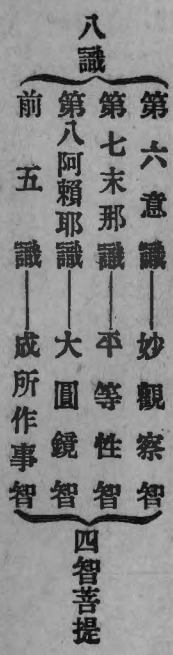 八識
第六意識——妙觀察智
第七末那識——平等性智
第八阿賴耶識——大圓鏡智
前五識——成所作事智
四智菩提